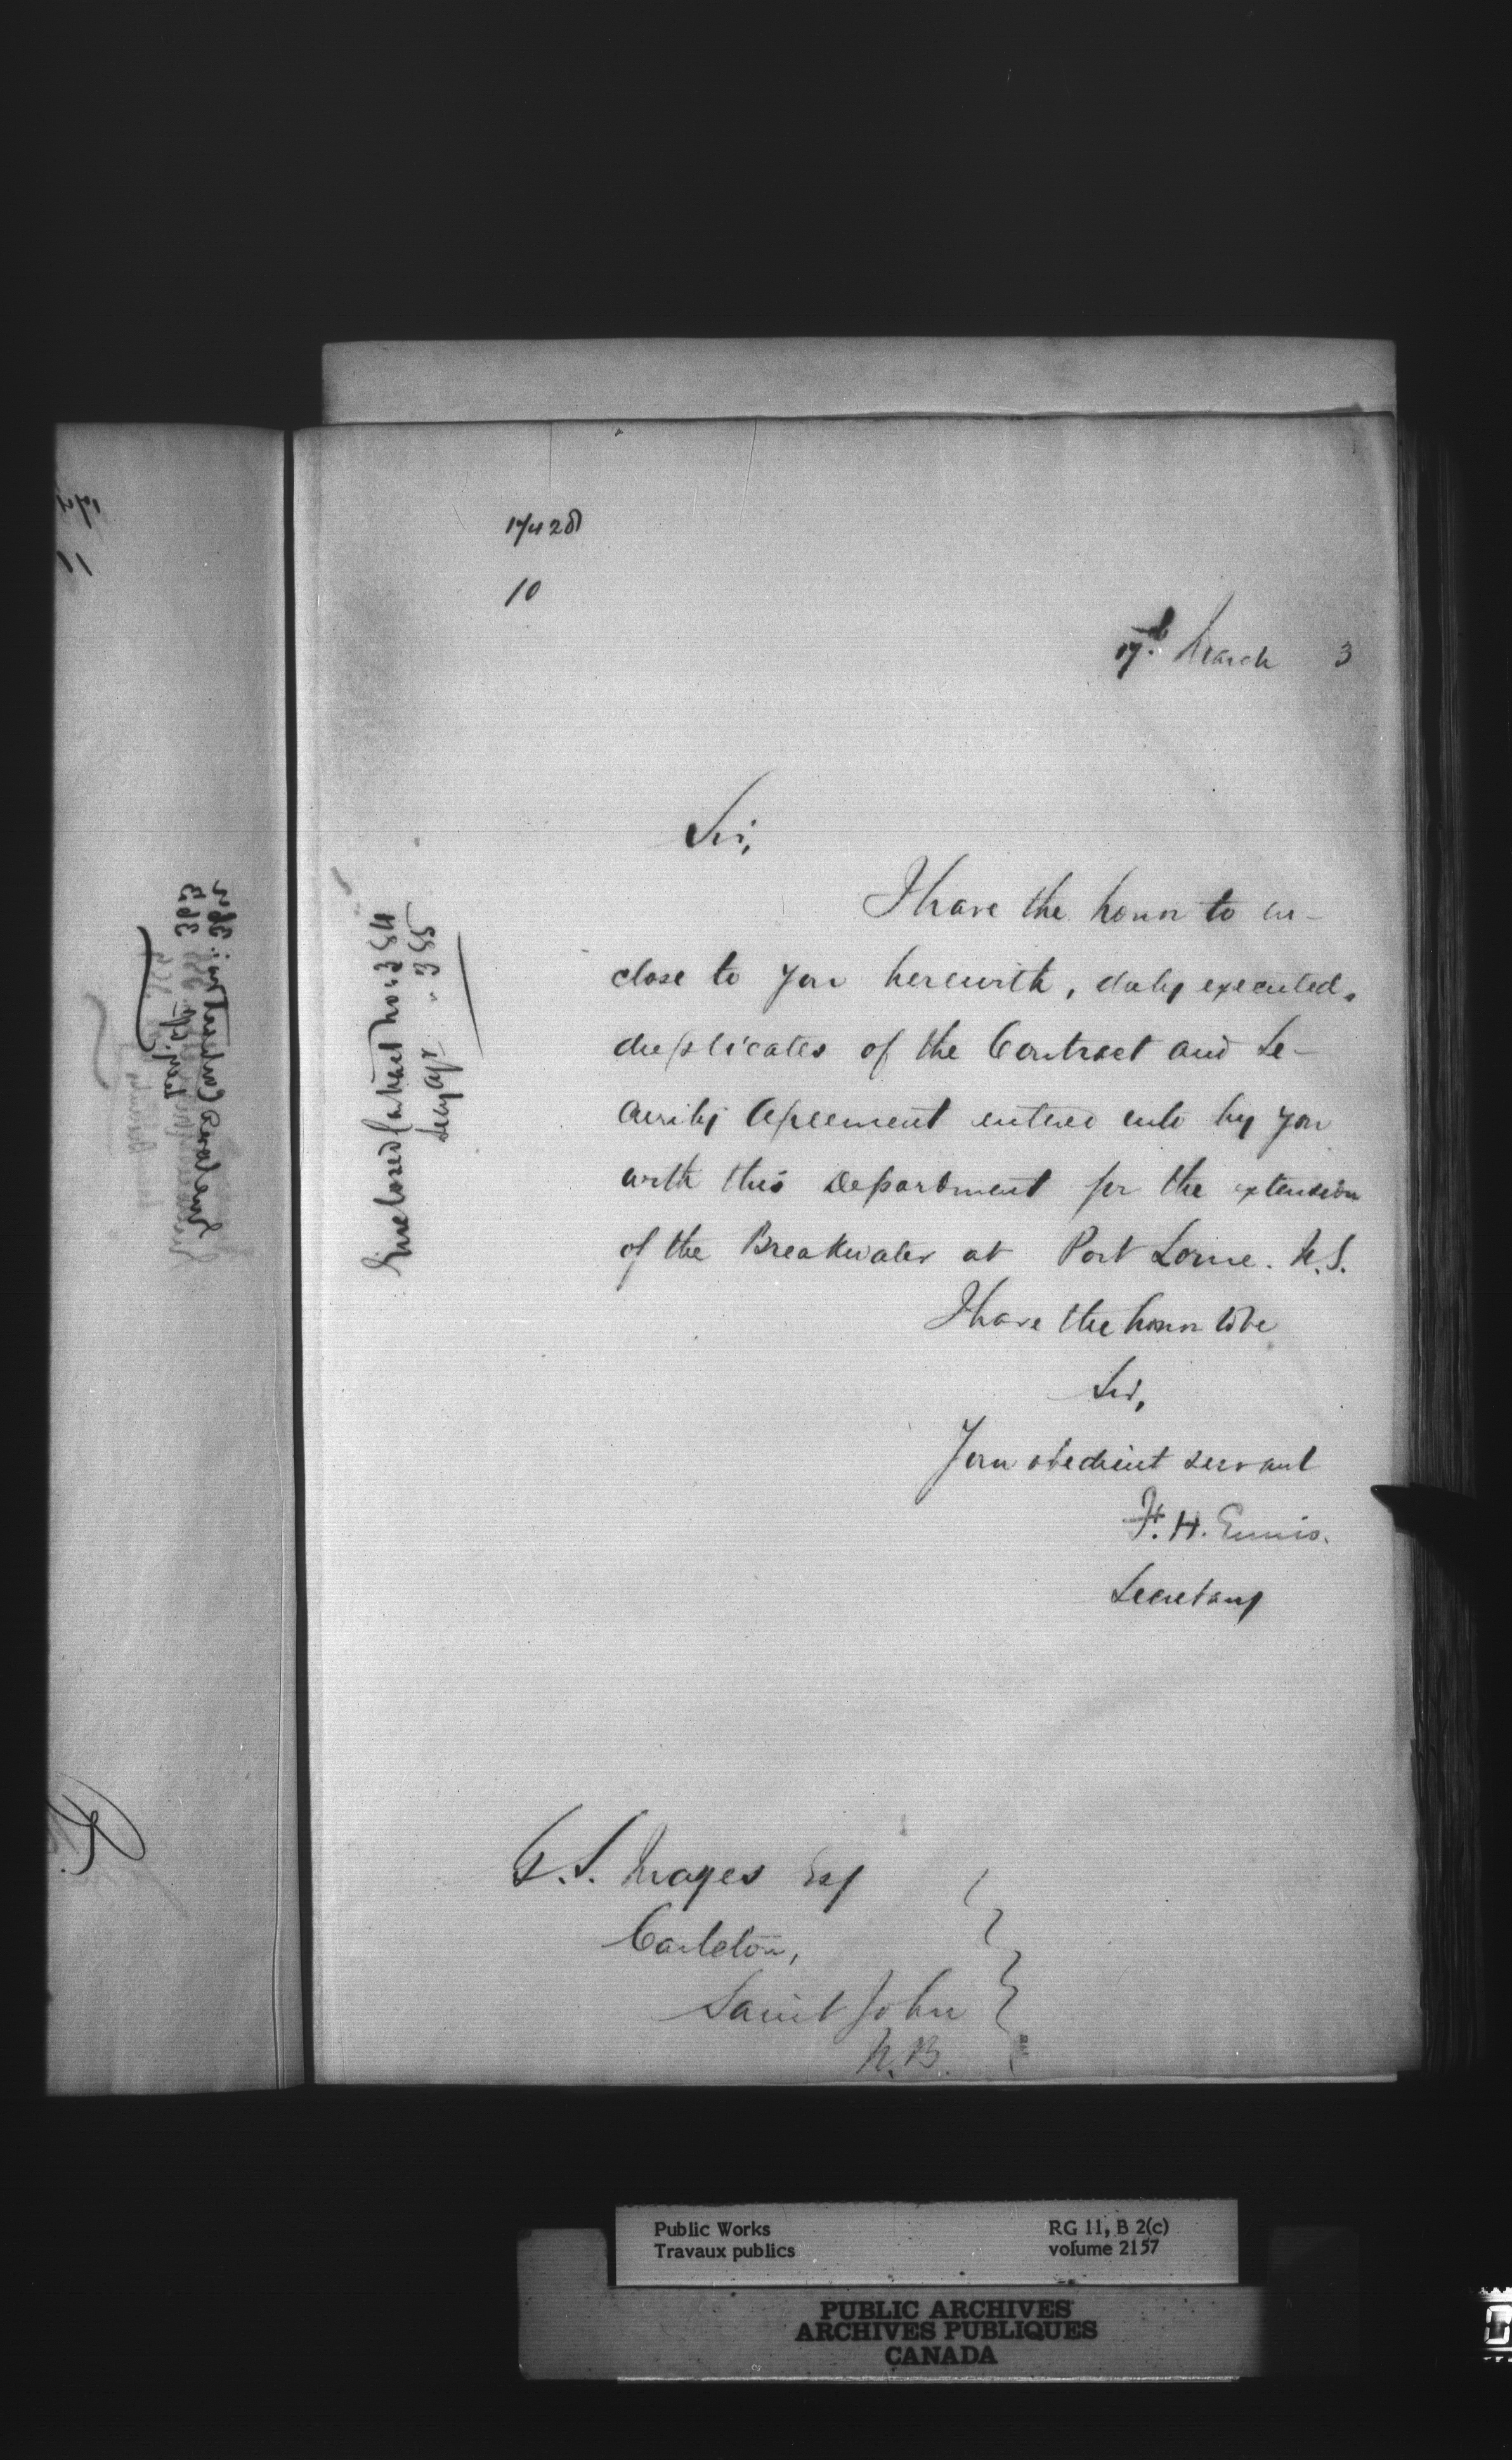 17428
10
17th March 3
Sir,
I have the honor to en-
close to you herewith, duly executed,
duplicates of the Contract and Se-
curity Agreement entered into by you
with this Department for the extension
of the Breakwater at Port Lorne. N.S.
I have the honor to be
Sir,
Your obedient servant
F. H. Ennis.
Secretary
Enclosed Contract No: 354
Secy Agr " 355
G. S. Mayes Esq
Carleton,
Saint John
N.B.
Public Works
Travaux publics
RG 11, B 2(c)
volume 2157
PUBLIC ARCHIVES
ARCHIVES PUBLIQUES
CANADA